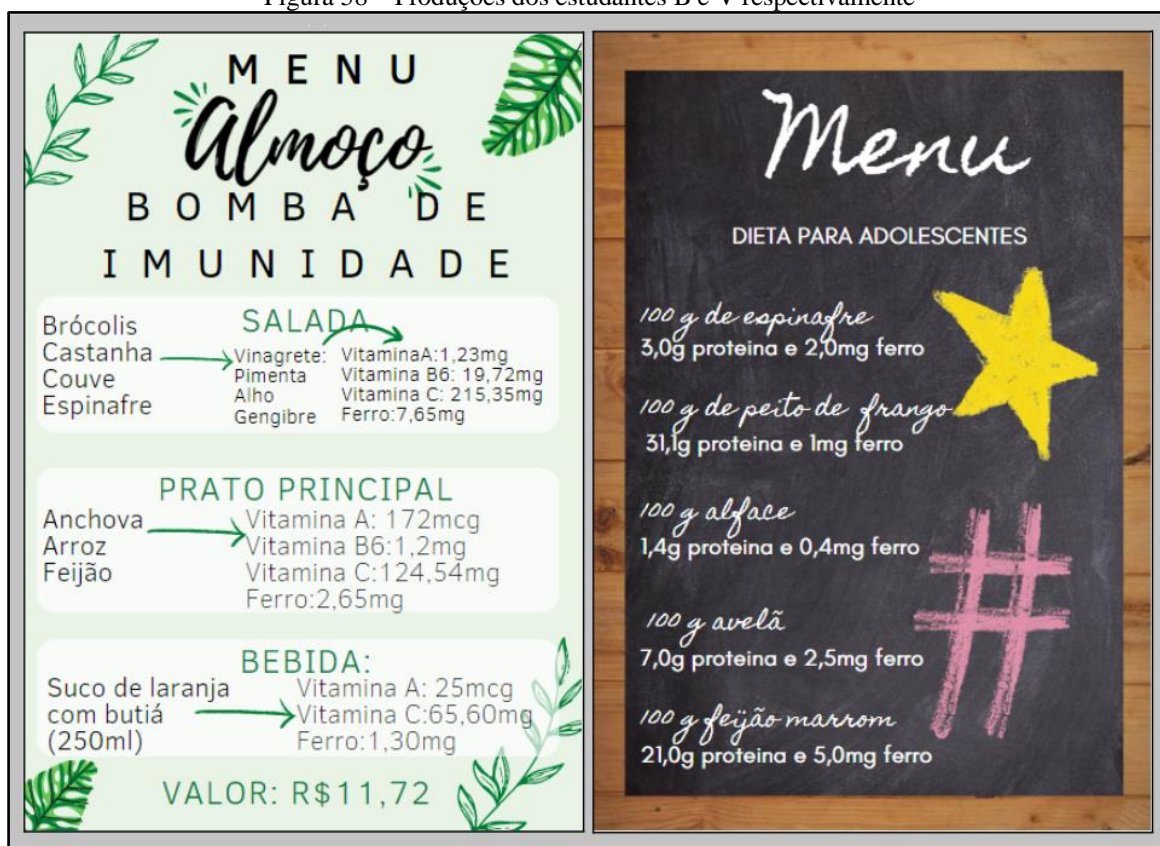 Figura 38 – Produções dos estudantes B e V respectivamente
MENU
Almoço
BOMBA DE
IMUNIDADE
SALADA
Brócolis
Castanha
Couve
Espinafre
Vinagrete:
Pimenta
Alho
Gengibre
VitaminaA:1,23mg
Vitamina B6: 19,72mg
Vitamina C: 215,35mg
Ferro:7,65mg
PRATO PRINCIPAL
Anchova
Arroz
Feijão
Vitamina A: 172mcg
Vitamina B6:1,2mg
Vitamina C:124,54mg
Ferro:2,65mg
BEBIDA:
Suco de laranja
com butiá
(250ml)
Vitamina A: 25mcg
Vitamina C:65,60mg
Ferro:1,30mg
VALOR: R$11,72
Menu
DIETA PARA ADOLESCENTES
100 g de espinafre
3,0g proteina e 2,0mg ferro
100 g de peito de frango
31,1g proteina e 1mg ferro
100 g alface
1,4g proteina e 0,4mg ferro
100 g avelã
7,0g proteina e 2,5mg ferro
100 g feijão marrom
21,0g proteina e 5,0mg ferro
#